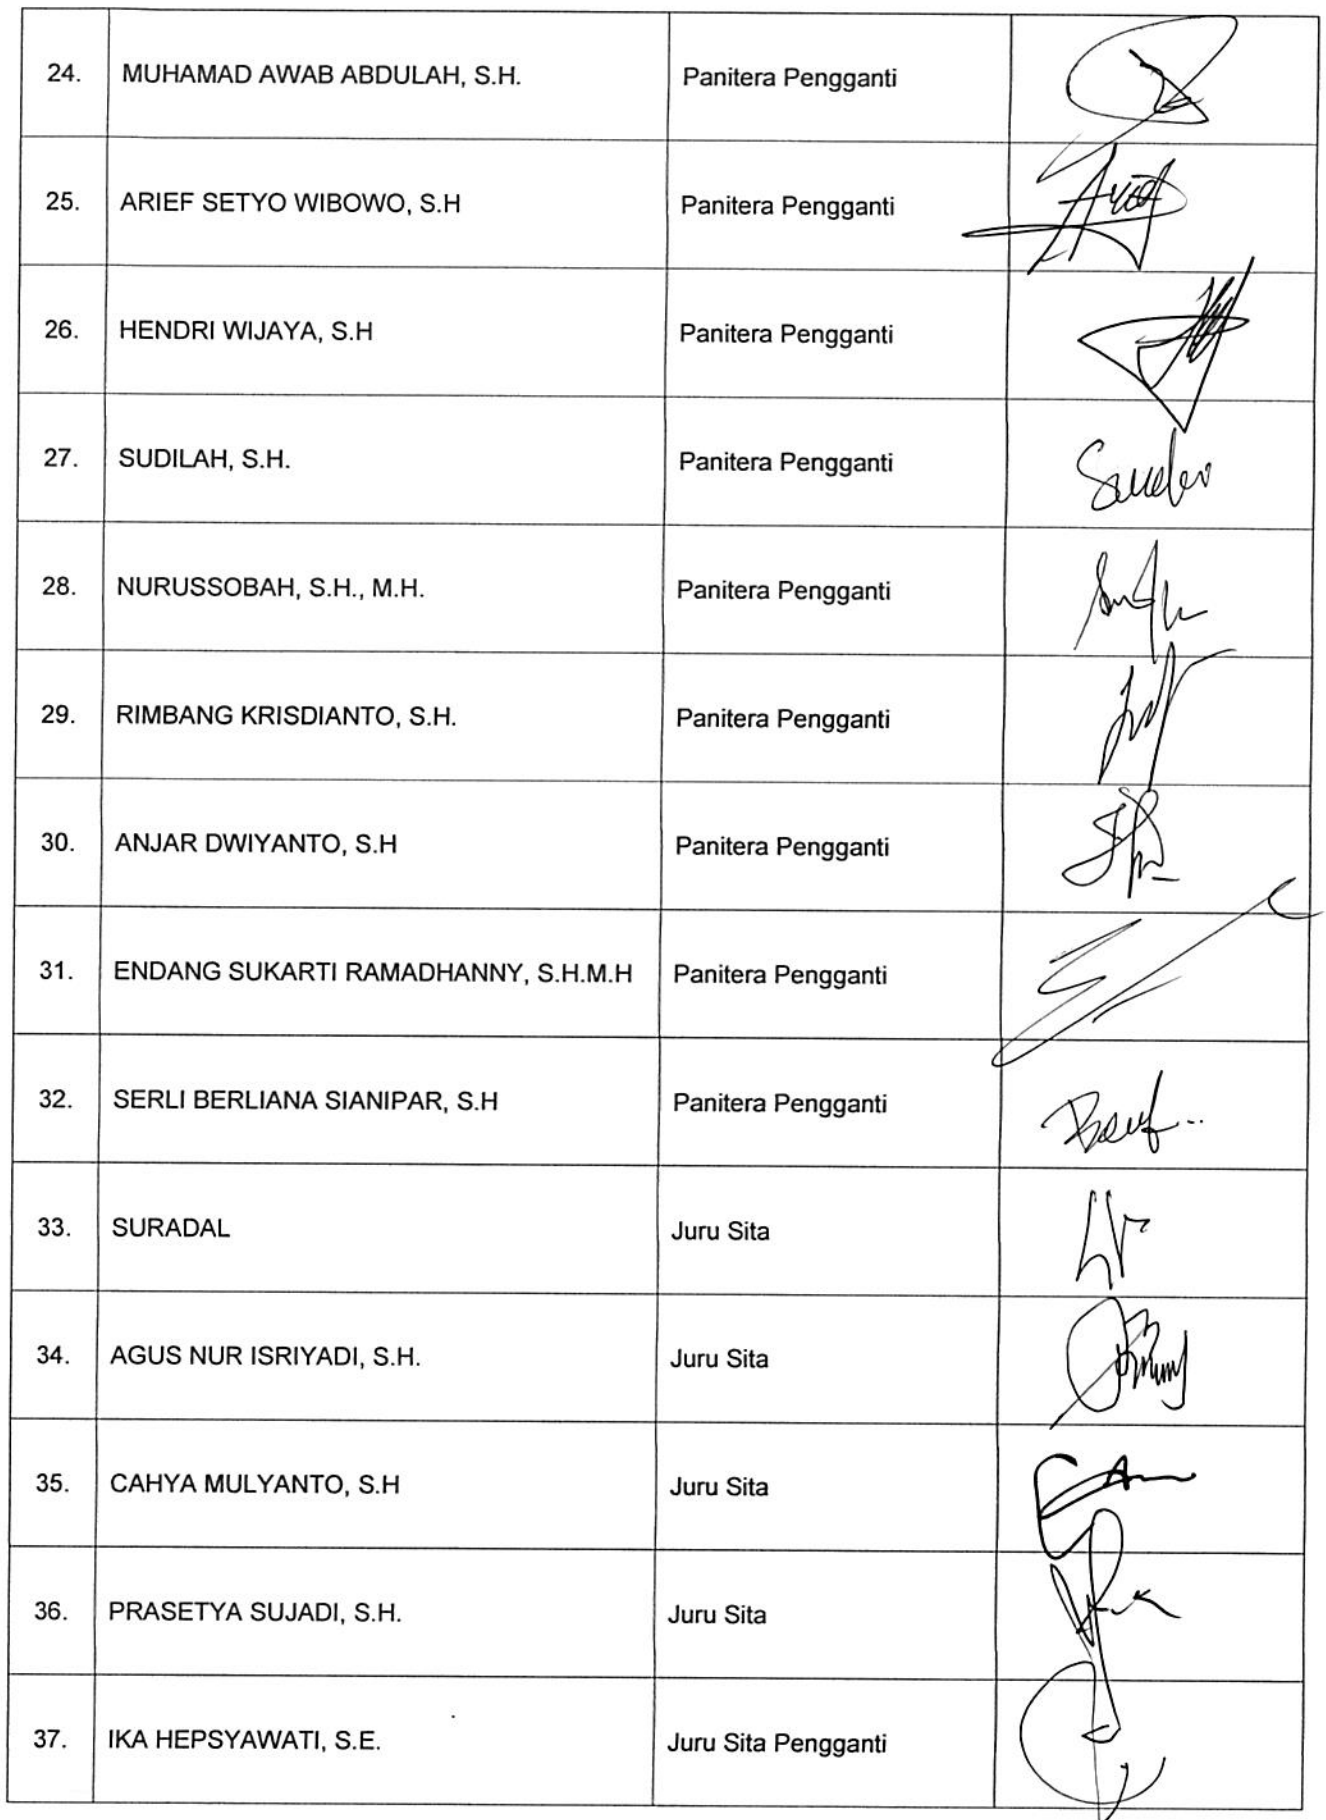 24. MUHAMAD AWAB ABDULAH, S.H. Panitera Pengganti
25. ARIEF SETYO WIBOWO, S.H Panitera Pengganti
26. HENDRI WIJAYA, S.H Panitera Pengganti
27. SUDILAH, S.H. Panitera Pengganti
28. NURUSSOBAH, S.H., M.H. Panitera Pengganti
29. RIMBANG KRISDIANTO, S.H. Panitera Pengganti
30. ANJAR DWIYANTO, S.H Panitera Pengganti
31. ENDANG SUKARTI RAMADHANNY, S.H.M.H Panitera Pengganti
32. SERLI BERLIANA SIANIPAR, S.H Panitera Pengganti
33. SURADAL Juru Sita
34. AGUS NUR ISRIYADI, S.H. Juru Sita
35. CAHYA MULYANTO, S.H Juru Sita
36. PRASETYA SUJADI, S.H. Juru Sita
37. IKA HEPSYAWATI, S.E. Juru Sita Pengganti